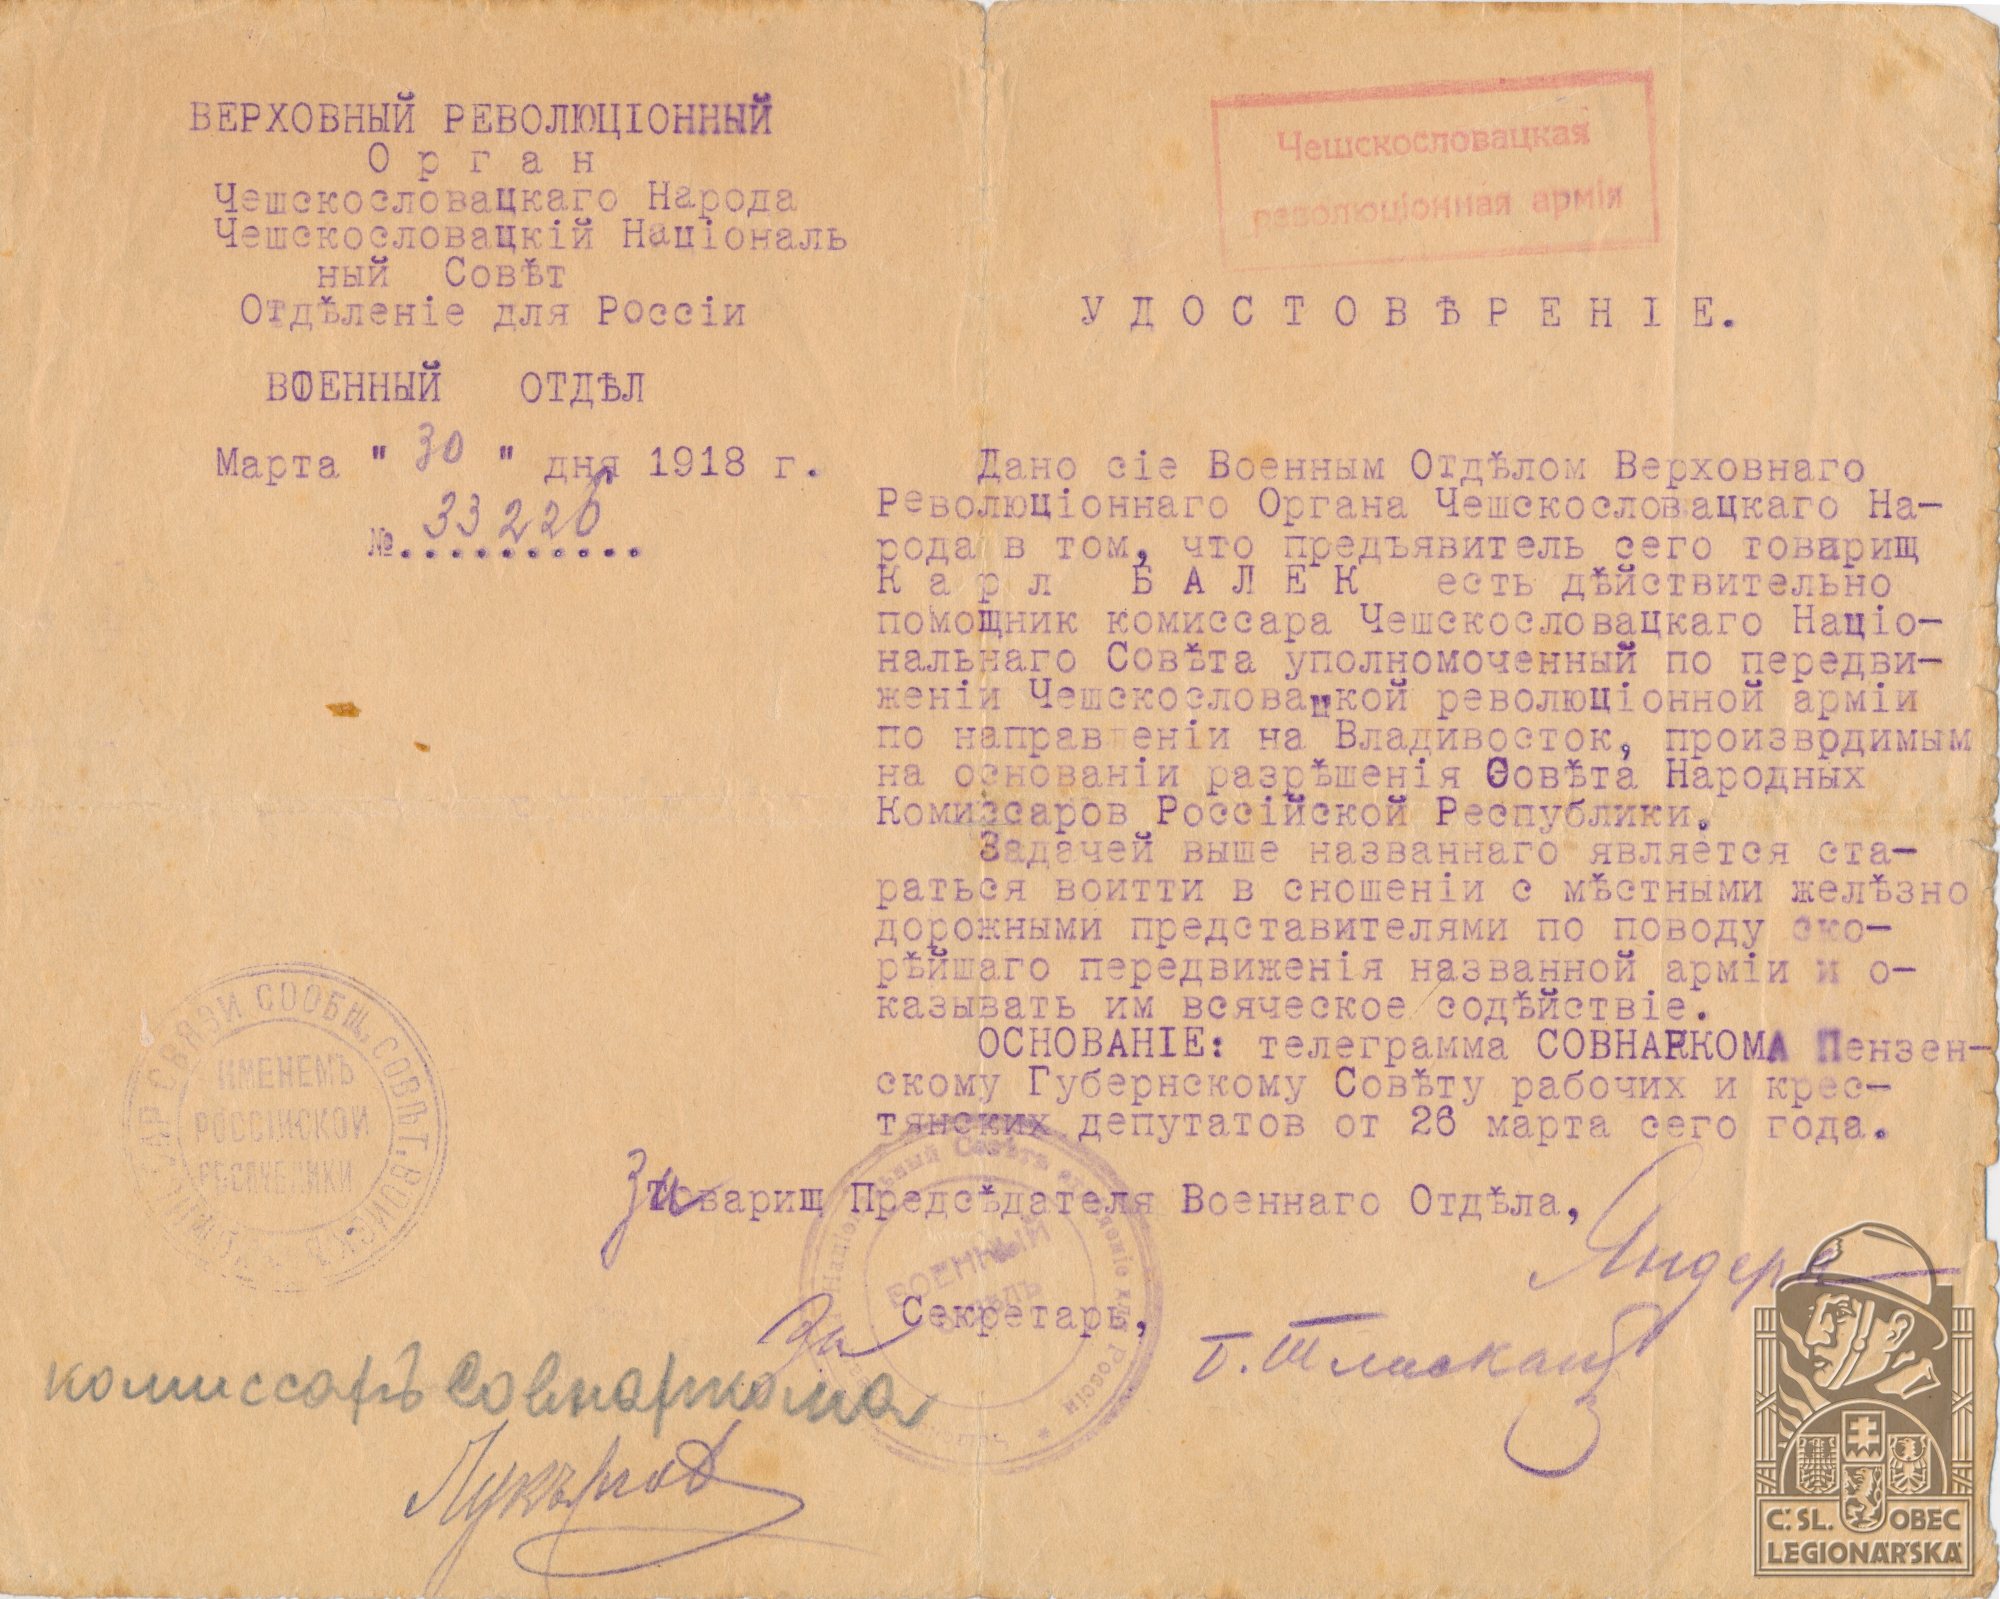 ВЕРХОВНЫЙ РЕВОЛЮЦІОННЫЙ
Орган
Чешскословацкаго Народа
Чешскословацкій Націоналъ
ный Совѣт
Отдѣленіе для Россіи
ВОЕННЫЙ ОТДѢЛ
Марта " 30 " дня 1918 г.
№ 33226
Чешскословацкая
революціонная армія
УДОСТОВѢРЕНІЕ.
Дано сіе Военным Отдѣлом Верховнаго
Революціоннаго Органа Чешскословацкаго На-
рода в том, что предъявитель сего товарищ
Карл БАЛЕК есть дѣйствительно
помощник комиссара Чешскословацкаго Націо-
нальнаго Совѣта уполномоченный по передви-
женіи Чешскословацкой революціонной арміи
по направленіи на Владивосток, производимым
на основаніи разрѣшенія Совѣта Народных
Комиссаров Россійской Республики.
Задачей выше названнаго является ста-
раться воитти в сношеніи с мѣстными желѣзно
дорожными представителями по поводу ско-
рѣйшаго передвиженія названной арміи и о-
казывать им всяческое содѣйствіе.
ОСНОВАНІЕ: телеграмма СОВНАРКОМА Пензен-
скому Губернскому Совѣту рабочих и крес-
тянских депутатов от 26 марта сего года.
За товарищ Предсѣдателя Военнаго Отдѣла,
За Секретарь,
комиссаръ Совнаркома
СВЯЗИ СООБЩ. СОВѢТ. ВОЙСКЪ
ИМЕНЕМЪ
РОССІЙСКОЙ
РЕСПУБЛИКИ
Совѣтъ отдѣленіе для Россіи
ВОЕННЫЙ
ОТДѢЛЪ
Č.SL. OBEC
LEGIONÁŘSKÁ